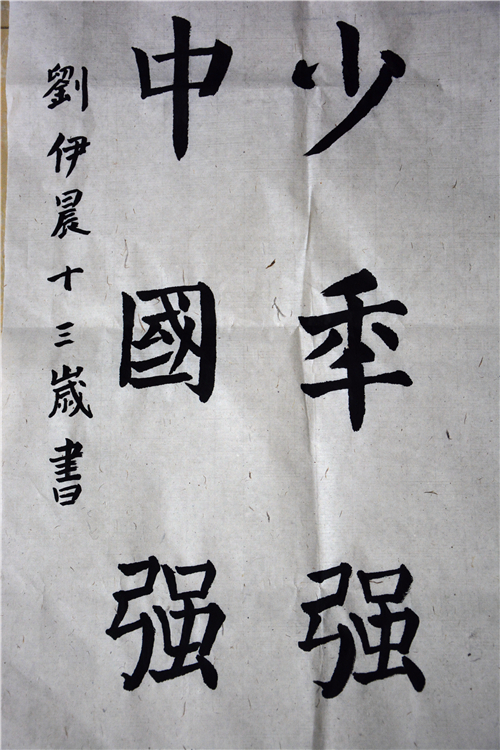 少秊强
中國强
劉伊晨十三歲書